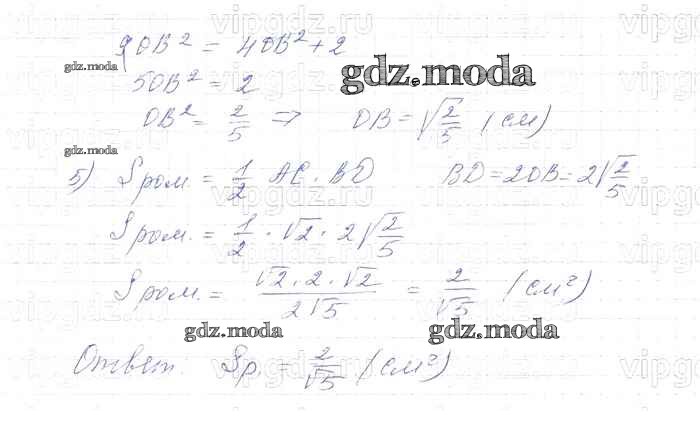 9OB² = 4OB² + 2
gdz.moda
gdz.moda
5OB² = 2
OB² = 2/5 => OB = √(2/5) (см)
gdz.moda
5) Sром = 1/2 AC · BD BD = 2OB = 2√(2/5)
Sром. = 1/2 · √2 · 2√(2/5)
Sром. = (√2 · 2 · √2)/(2√5) = 2/√5 (см²)
gdz.moda gdz.moda
Ответ. Sр. = 2/√5 (см²)